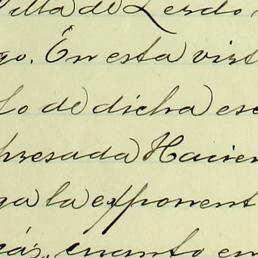 Villa de Lerdo
go. En esta virt
lo de dicha es
presada Hacien
ga la esponent
cuanto en